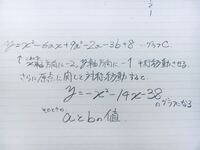 y=x²-6ax+9a²-2a-3b+8 …グラフC
↑x軸方向に-2, y軸方向に-1平行移動させる
さらに原点に関して対称移動すると、
y=-x²-14x-38
のグラフになる
そのときの
aとbの値